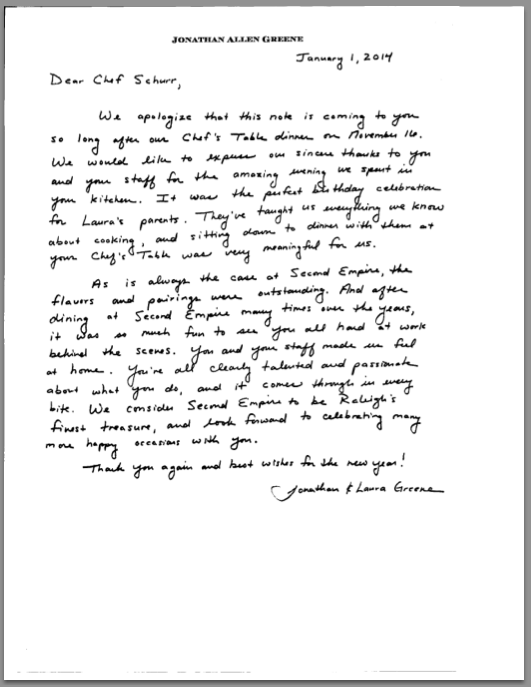 JONATHAN ALLEN GREENE
January 1, 2014
Dear Chef Schurr,
We apologize that this note is coming to you
so long after our Chef's Table dinner on November 16.
We would like to express our sincere thanks to you
and your staff for the amazing evening we spent in
your kitchen. It was the perfect birthday celebration
for Laura's parents. They've taught us everything we know
about cooking, and sitting down to dinner with them at
your Chef's Table was very meaningful for us.
As is always the case at Second Empire, the
flavors and pairings were outstanding. And after
dining at Second Empire many times over the years,
it was so much fun to see you all hard at work
behind the scenes. You and your staff made us feel
at home. You're all clearly talented and passionate
about what you do, and it comes through in every
bite. We consider Second Empire to be Raleigh's
finest treasure, and look forward to celebrating many
more happy occasions with you.
Thank you again and best wishes for the new year!
Jonathan & Laura Greene